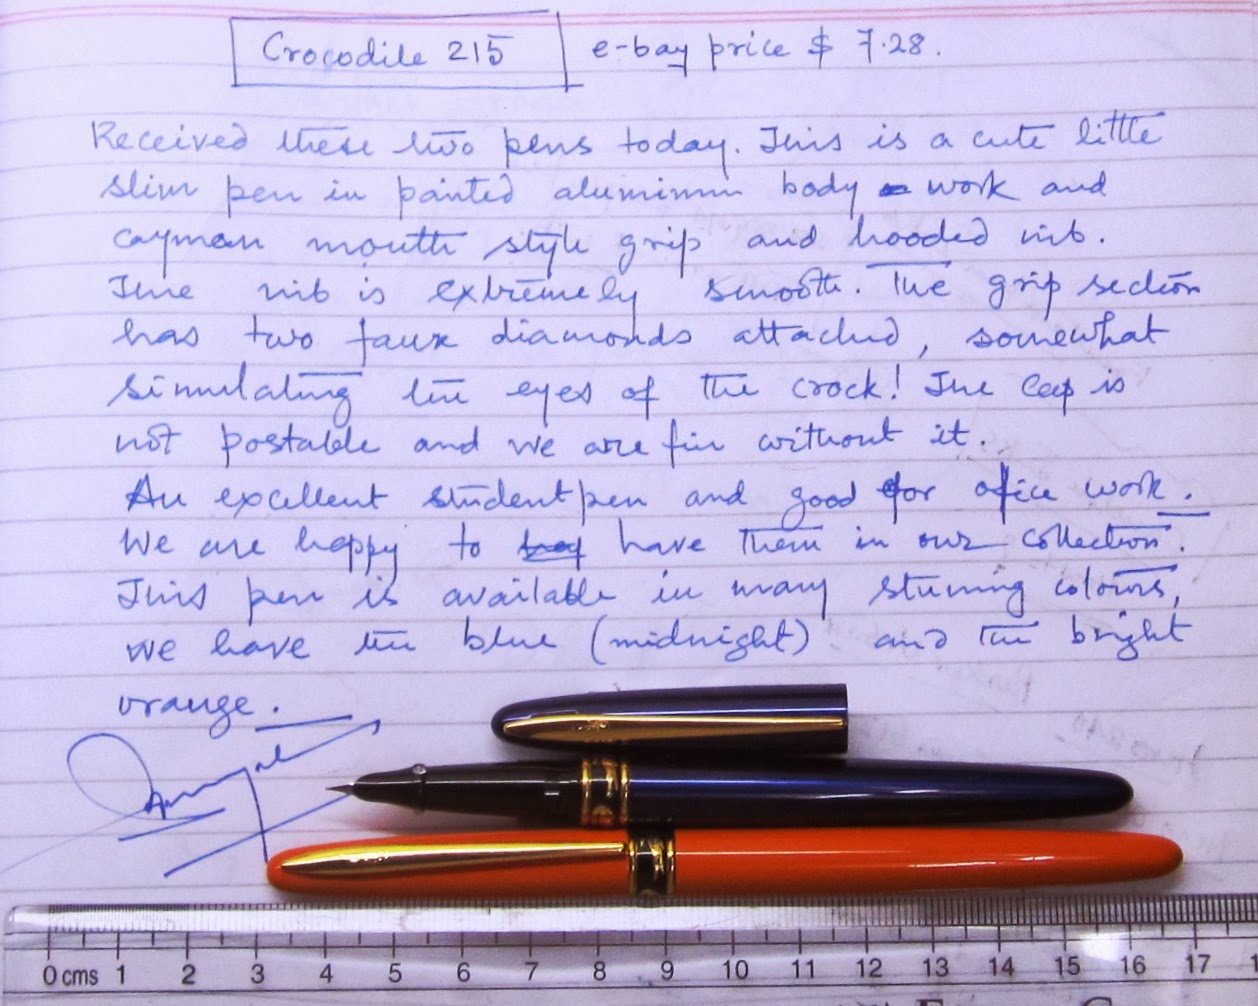 Crocodile 215 e-bay price $ 7.28.
Received these two pens today. This is a cute little
slim pen in painted aluminum body work and
cayman mouth style grip and hooded nib.
The nib is extremely smooth. The grip section
has two faux diamonds attached, somewhat
simulating the eyes of the crock! The cap is
not postable and we are fin without it.
An excellent student pen and good for office work.
We are happy to have them in our collection.
This pen is available in many stunning colours,
we have the blue (midnight) and the bright
orange.
0 cms 1 2 3 4 5 6 7 8 9 10 11 12 13 14 15 16 17